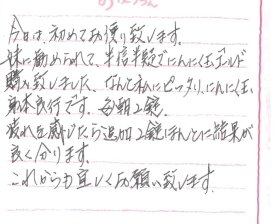 今日は、初めてお便り致します。
妹に勧められて、半信半疑でにんにく玉ゴールド
購入致しました、なんと私にピッタリ、にんにく玉、
気分良好です。毎朝2錠、
疲れを感じたら追加2錠ほんとに結果が
良く分ります。
これからも宜しくお願い致します。